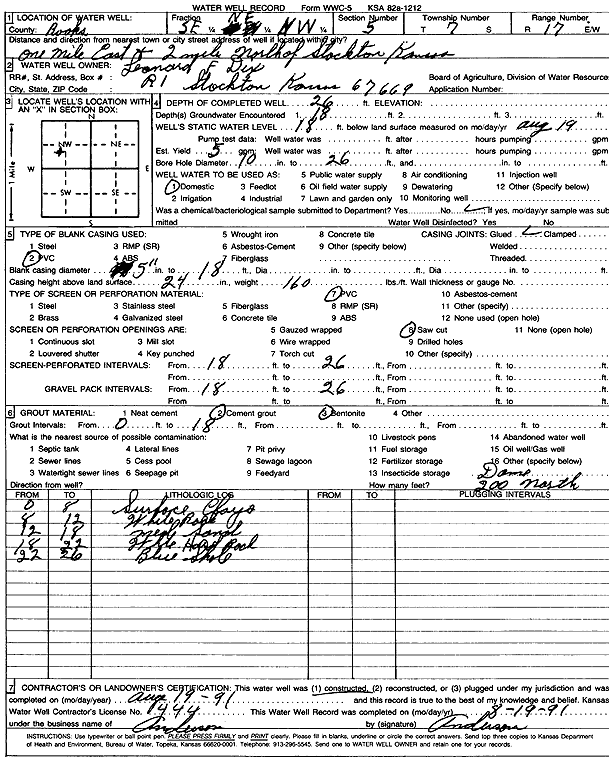 WATER WELL RECORD Form WWC-5 KSA 82a-1212
1 LOCATION OF WATER WELL: Fraction Section Number Township Number Range Number
County: Rooks SE ¼ NE ¼ NW ¼ 5 T 7 S R 17 E/W
Distance and direction from nearest town or city street address of well if located within city?
One mile East + 2 miles North of Stockton Kansas
2 WATER WELL OWNER: Leonard F Dix
RR#, St. Address, Box # : R1 Board of Agriculture, Division of Water Resources
City, State, ZIP Code : Stockton Kansas 67669 Application Number:
3 LOCATE WELL'S LOCATION WITH AN "X" IN SECTION BOX:
N
NW NE
W E
SW SE
S
1 Mile
4 DEPTH OF COMPLETED WELL 26 ft. ELEVATION:
Depth(s) Groundwater Encountered 1. 18 ft. 2. ft. 3.
WELL'S STATIC WATER LEVEL 18 ft. below land surface measured on mo/day/yr Aug 19
Pump test data: Well water was ft. after hours pumping gpm
Est. Yield 5 gpm Well water was ft. after hours pumping gpm
Bore Hole Diameter 10 in. to 26 ft., and in. to
WELL WATER TO BE USED AS: 5 Public water supply 8 Air conditioning 11 Injection well
1 Domestic 3 Feedlot 6 Oil field water supply 9 Dewatering 12 Other (Specify below)
2 Irrigation 4 Industrial 7 Lawn and garden only 10 Monitoring well
Was a chemical/bacteriological sample submitted to Department? Yes No ; If yes, mo/day/yr sample was sub
mitted Water Well Disinfected? Yes No
5 TYPE OF BLANK CASING USED: 5 Wrought iron 8 Concrete tile CASING JOINTS: Glued Clamped
1 Steel 3 RMP (SR) 6 Asbestos-Cement 9 Other (specify below) Welded
2 PVC 4 ABS 7 Fiberglass Threaded
Blank casing diameter 5" in. to 18 ft., Dia in. to ft., Dia in. to
Casing height above land surface 24 in., weight 160 lbs./ft. Wall thickness or gauge No.
TYPE OF SCREEN OR PERFORATION MATERIAL: 7 PVC 10 Asbestos-cement
1 Steel 3 Stainless steel 5 Fiberglass 8 RMP (SR) 11 Other (specify)
2 Brass 4 Galvanized steel 6 Concrete tile 9 ABS 12 None used (open hole)
SCREEN OR PERFORATION OPENINGS ARE: 5 Gauzed wrapped 8 Saw cut 11 None (open hole)
1 Continuous slot 3 Mill slot 6 Wire wrapped 9 Drilled holes
2 Louvered shutter 4 Key punched 7 Torch cut 10 Other (specify)
SCREEN-PERFORATED INTERVALS: From 18 ft. to 26 ft., From
From ft. to ft., From
GRAVEL PACK INTERVALS: From 18 ft. to 26 ft., From
From ft. to ft., From
6 GROUT MATERIAL: 1 Neat cement 2 Cement grout 3 Bentonite 4 Other
Grout Intervals: From 0 ft. to 18 ft., From ft. to ft., From ft. to
What is the nearest source of possible contamination: 10 Livestock pens 14 Abandoned water well
1 Septic tank 4 Lateral lines 7 Pit privy 11 Fuel storage 15 Oil well/Gas well
2 Sewer lines 5 Cess pool 8 Sewage lagoon 12 Fertilizer storage 16 Other (specify below)
3 Watertight sewer lines 6 Seepage pit 9 Feedyard 13 Insecticide storage
Direction from well? How many feet? 200 North
FROM TO LITHOLOGIC LOG FROM TO PLUGGING INTERVALS
0 8 Surface Clays
8 12 White Rock
12 18 Med Sand
18 22 White Hard Rock
22 26 Blue Shale
7 CONTRACTOR'S OR LANDOWNER'S CERTIFICATION: This water well was (1) constructed, (2) reconstructed, or (3) plugged under my jurisdiction and was
completed on (mo/day/year) Aug 19-91 and this record is true to the best of my knowledge and belief. Kansas
Water Well Contractor's License No. 444 This Water Well Record was completed on (mo/day/yr) 8-19-91
under the business name of Anderson by (signature) Anderson
INSTRUCTIONS: Use typewriter or ball point pen. PLEASE PRESS FIRMLY and PRINT clearly. Please fill in blanks, underline or circle the correct answers. Send top three copies to Kansas Department
of Health and Environment, Bureau of Water, Topeka, Kansas 66620-0001. Telephone: 913-296-5545. Send one to WATER WELL OWNER and retain one for your records.